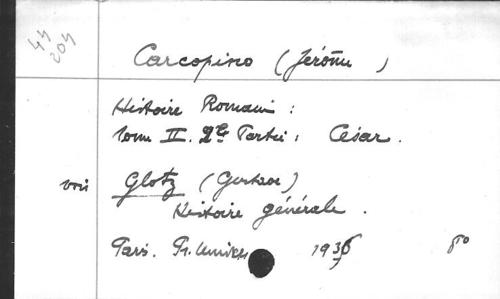 44
204
Carcopino (Jérôme)
Histoire Romaine :
Tome II. 2e Partie : César.
voir Glotz (Gustave)
Histoire générale.
Paris. Pr. Univers 1936 8°